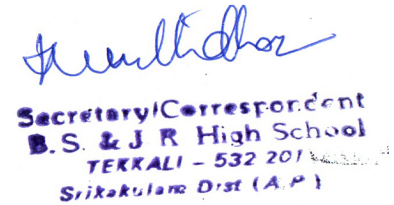 Secretary/Correspondent
B.S. & J R High School
TEKKALI - 532 201
Srikakulam Dist (A.P)